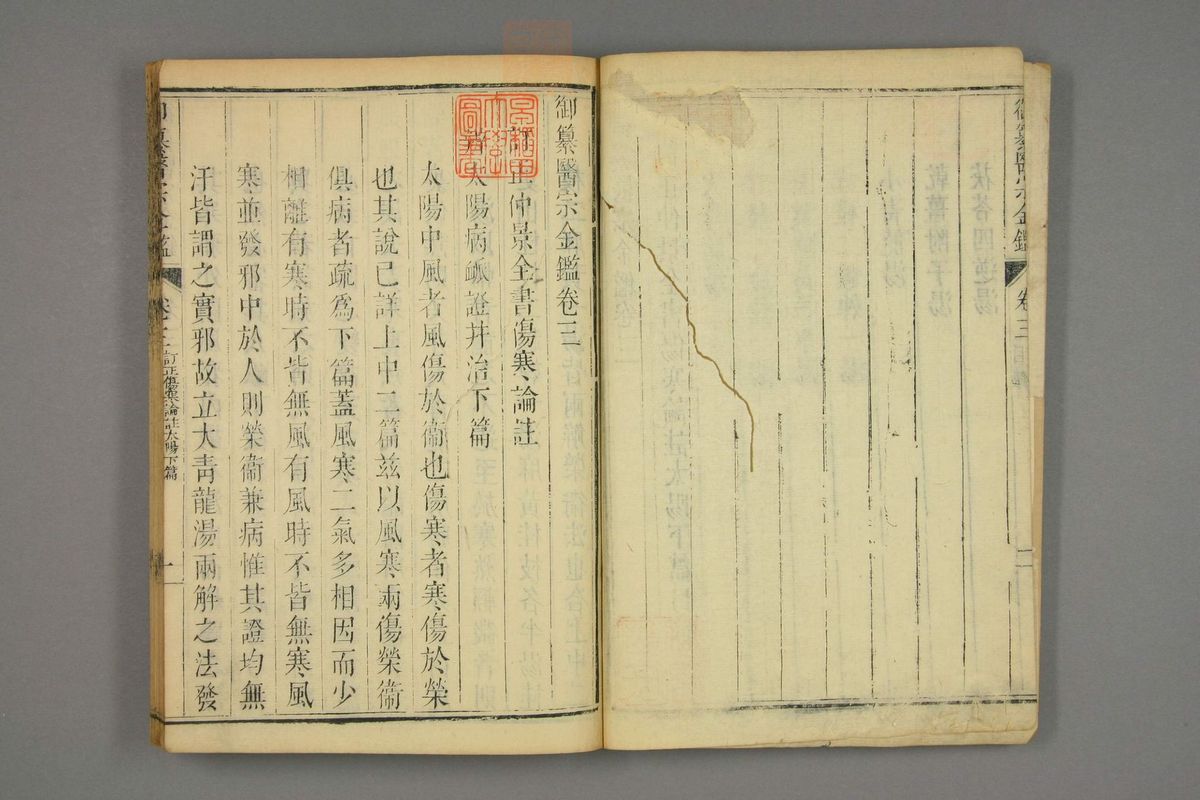 御纂醫宗金鑑
卷三
御纂醫宗金鑑卷三
訂正仲景全書傷寒論註
太陽病脈證并治下篇
太陽中風者風傷於衞也傷寒者寒傷於榮
也其說已詳上中二篇兹以風寒兩傷榮衞
俱病者疏爲下篇蓋風寒二氣多相因而少
相離有寒時不皆無風有風時不皆無寒風
寒並發邪中於人則榮衞兼病惟其證均無
汗皆謂之實邪故立大青龍湯兩解之法發
御纂醫宗金鑑
卷三
訂正傷寒論註太陽下篇
一